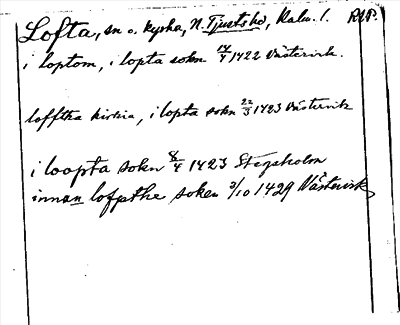 Lofta, sn o. kyrka, N. Tjustsho, Kalm. l. RAP.
i loptom, i lopta sokn 14/4 1422 Västervik.
lofftra kirkia, i lopta sokn 22/3 1423 Västervik
i loopta sokn 8/4 1423 Stegeholm
innan lofpthe soken 3/10 1429 Västervik